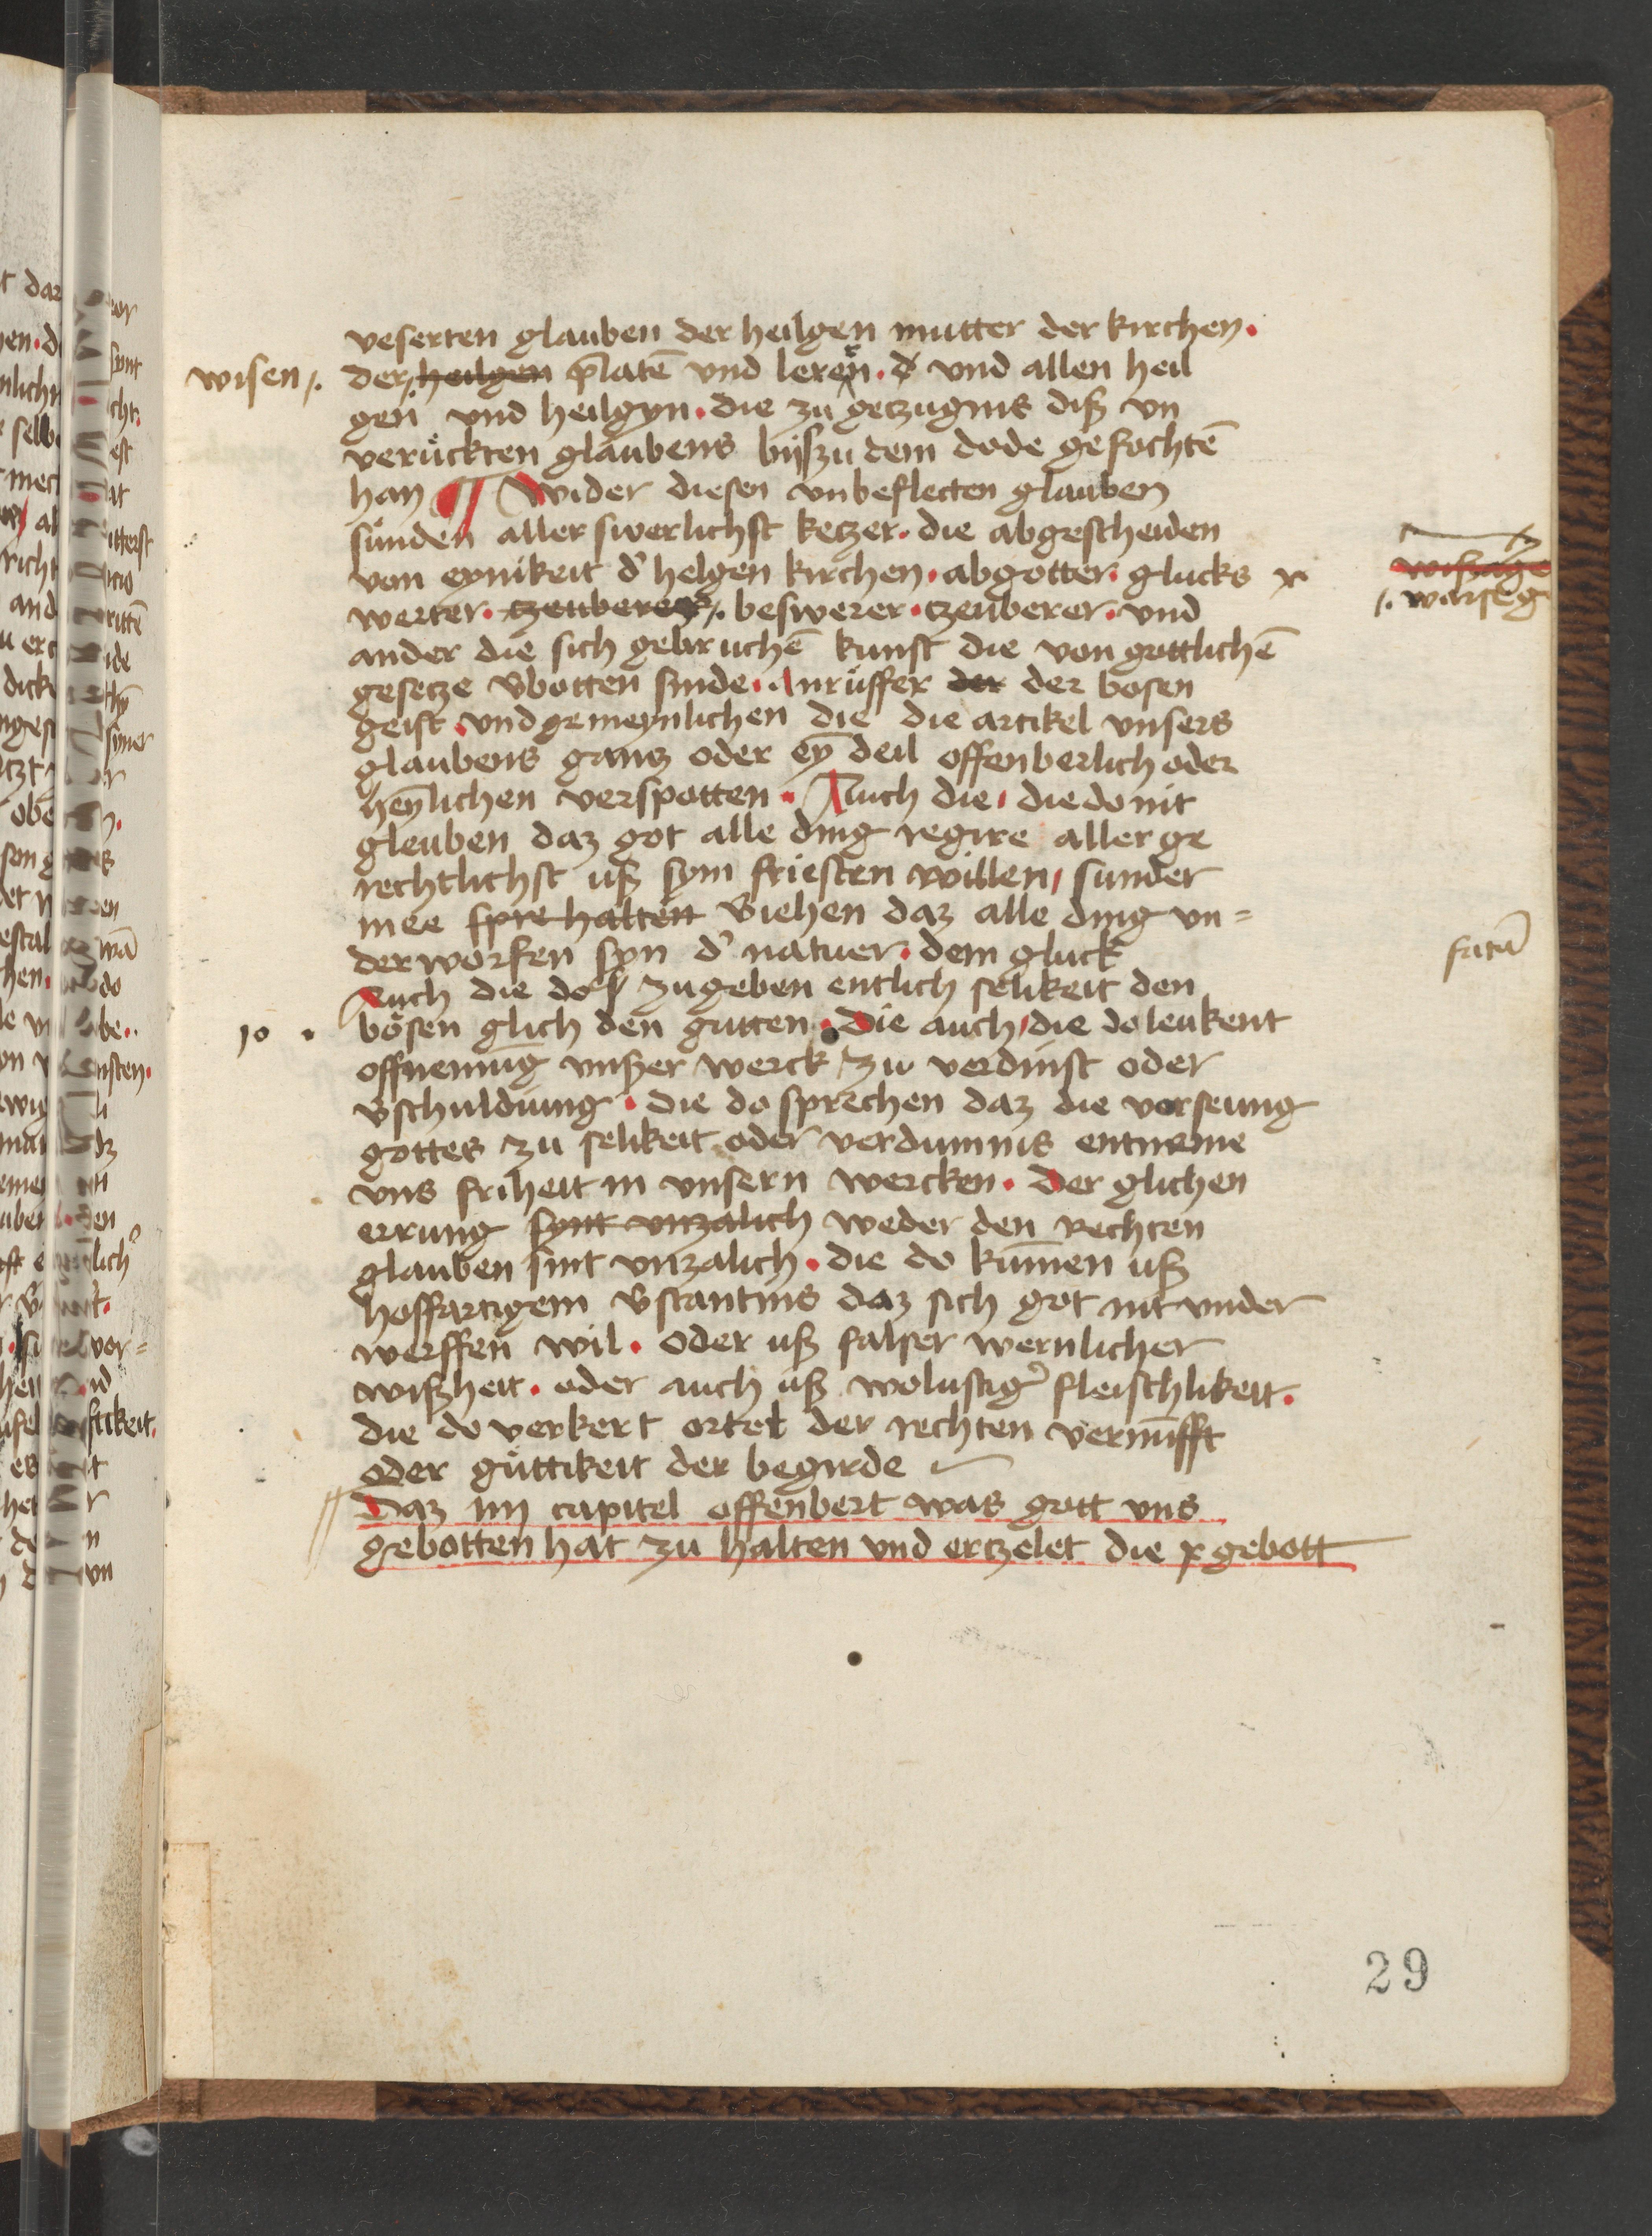 veserten glauben der heilgen mutter der kirchen.
wisen /. der /. heilgen p̄latē vnd leren. d' vnd allen heil
gen vnd heilgyn. die zu getzugnis diß vn
verückten glaubens byszu dem dode gefochtē
han ¶ Wider diesen vnbeflecten glauben
sünden aller swerlichst ketzer. die abgescheiden
von eynikeit d' helgen kirchen. abgotter. glucks
wißage
/. warseg
werter. tzeuberer /. beswerer. tzeuberer. vnd
ander die sich gebruchē kunst die von gottlichē
gesetze vbotten sinde. Anrüffer der der bosen
geist. vnd gemeynlichen die die artikel vnsers
glaubens gantz oder eȳ deil offenberlich oder
heȳlichen verspotten. Auch die / die do nit
gleuben daz got alle ding regire aller ge
rechtlichst uß sym friesten willen / sunder
mee spre halten viehen daz alle ding vn=
der worfen syn d' natuer. dem gluck
fatū
Auch die do zugeben entlich selikeit den
10 . bösen glich den gutten. Die auch / die do leukent
offnemūg vnßer werck zu verdinst oder
vschuldiung. die do sprechen daz die vorseung
gottes zu selikeit oder verdumnis entneme
vns friheit in vnsern wercken. Der glichen
errung synt vnzalich weder den rechten
glauben sint vnzalich. die do kūmen uß
hoffartigem vstantnis daz sich got nit vnder
werffen wil. oder uß falser wernlicher
wißheit. oder auch uß wolustig' fleischlikeit.
die do verkert ortel der rechten vernūfft
oder güttikeit der begirde
Daz iiij capitel offenbert was gott vns
gebotten hat zu halten vnd ertzelet die x gebott
29